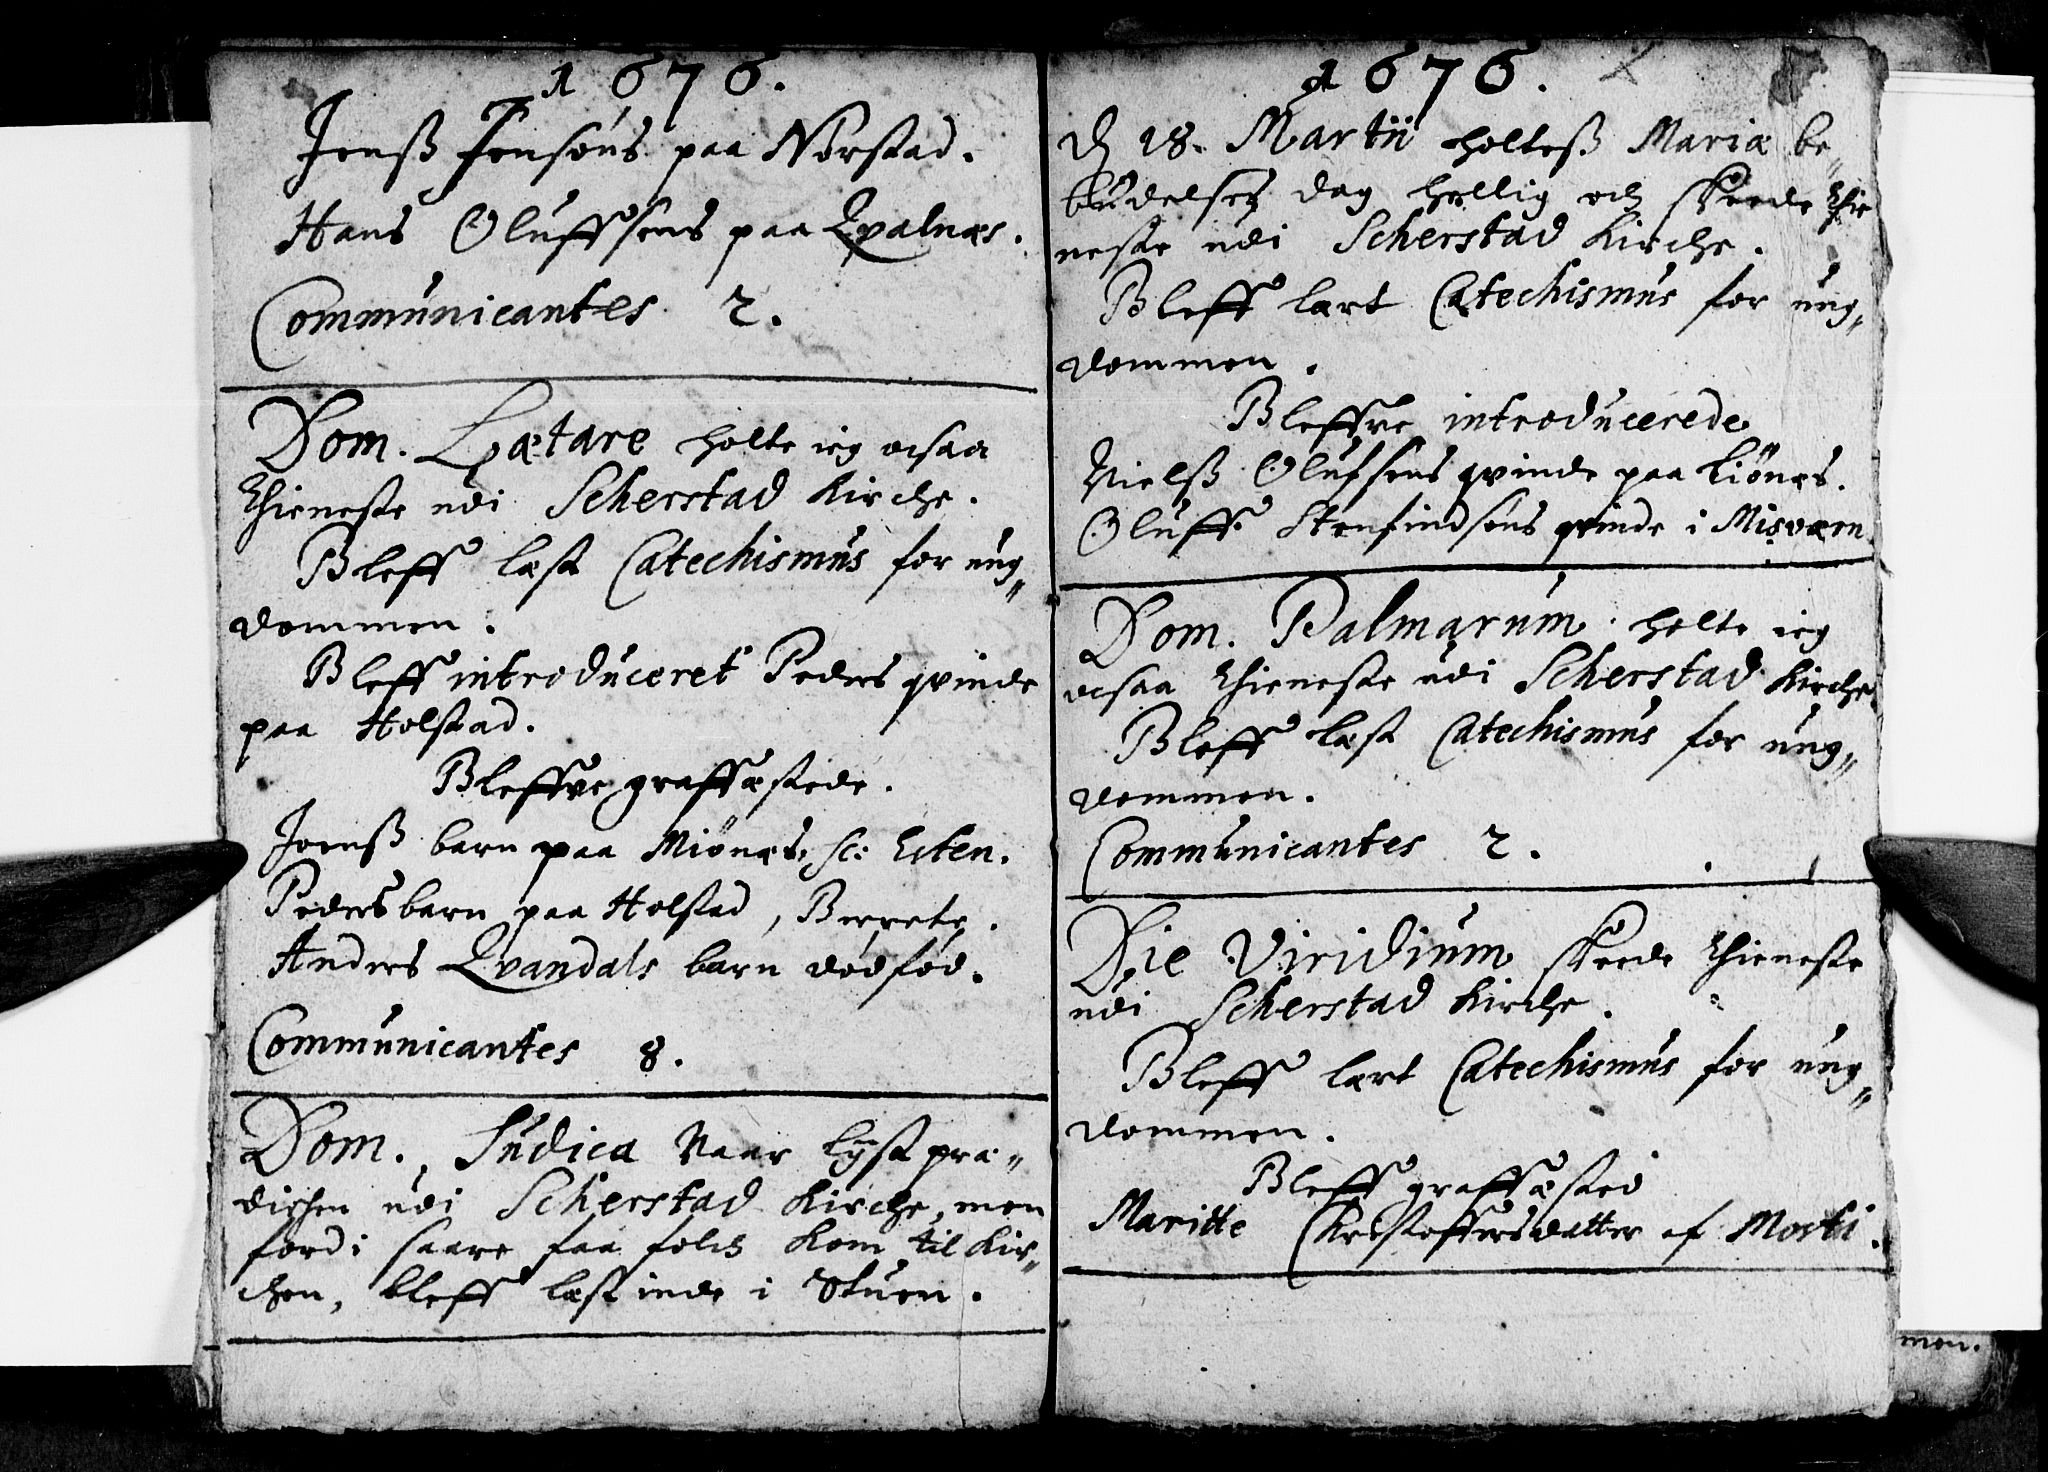 1676.
Jenß Jensøns paa Norstad.
Hans Oluffsens paa Qvalnæs.
Communicantes 2.
Dom. Lætare holte ieg ocsaa
thieneste udi Scherstad Kirche.
Bleff læst Catechismus for ung„
dommen.
Bleff introduceret Peders qvinde
paa Holstad.
Bleffve graffæstede.
Joenß barn paa Miønæs, sc: Elen.
Peders barn paa Holstad, Berrete.
Anders Qvandals barn dødfød.
Communicantes 8.
Dom. Judica vaar lyst præ„
dichen udi Scherstad Kirche, men
fordi saare faa folck kom til Kir„
chen, bleff læst inde i Stuen.
1676.
D 18. Martii holteß Mariæ be„
budelses dag hellig och skeede thie
neste udi Scherstad Kirche.
Bleff lært Catechismus for ung„
dommen.
Bleffve introducerede
Nielß Olufsens qvinde paa Liønes.
Oluff Stenfindsøns qvinde i Misværn
Dom. Palmarum holte ieg
ocsaa thieneste udi Scherstad Kirche.
Bleff læst Catechismus for ung„
dommen.
Communicantes 2.
Die Viridium skeede thieneste
udi Scherstad Kirche.
Bleff lært Catechismus for ung„
dommen.
Bleff graffæsted
Maritte Christoffersdatter af
men.